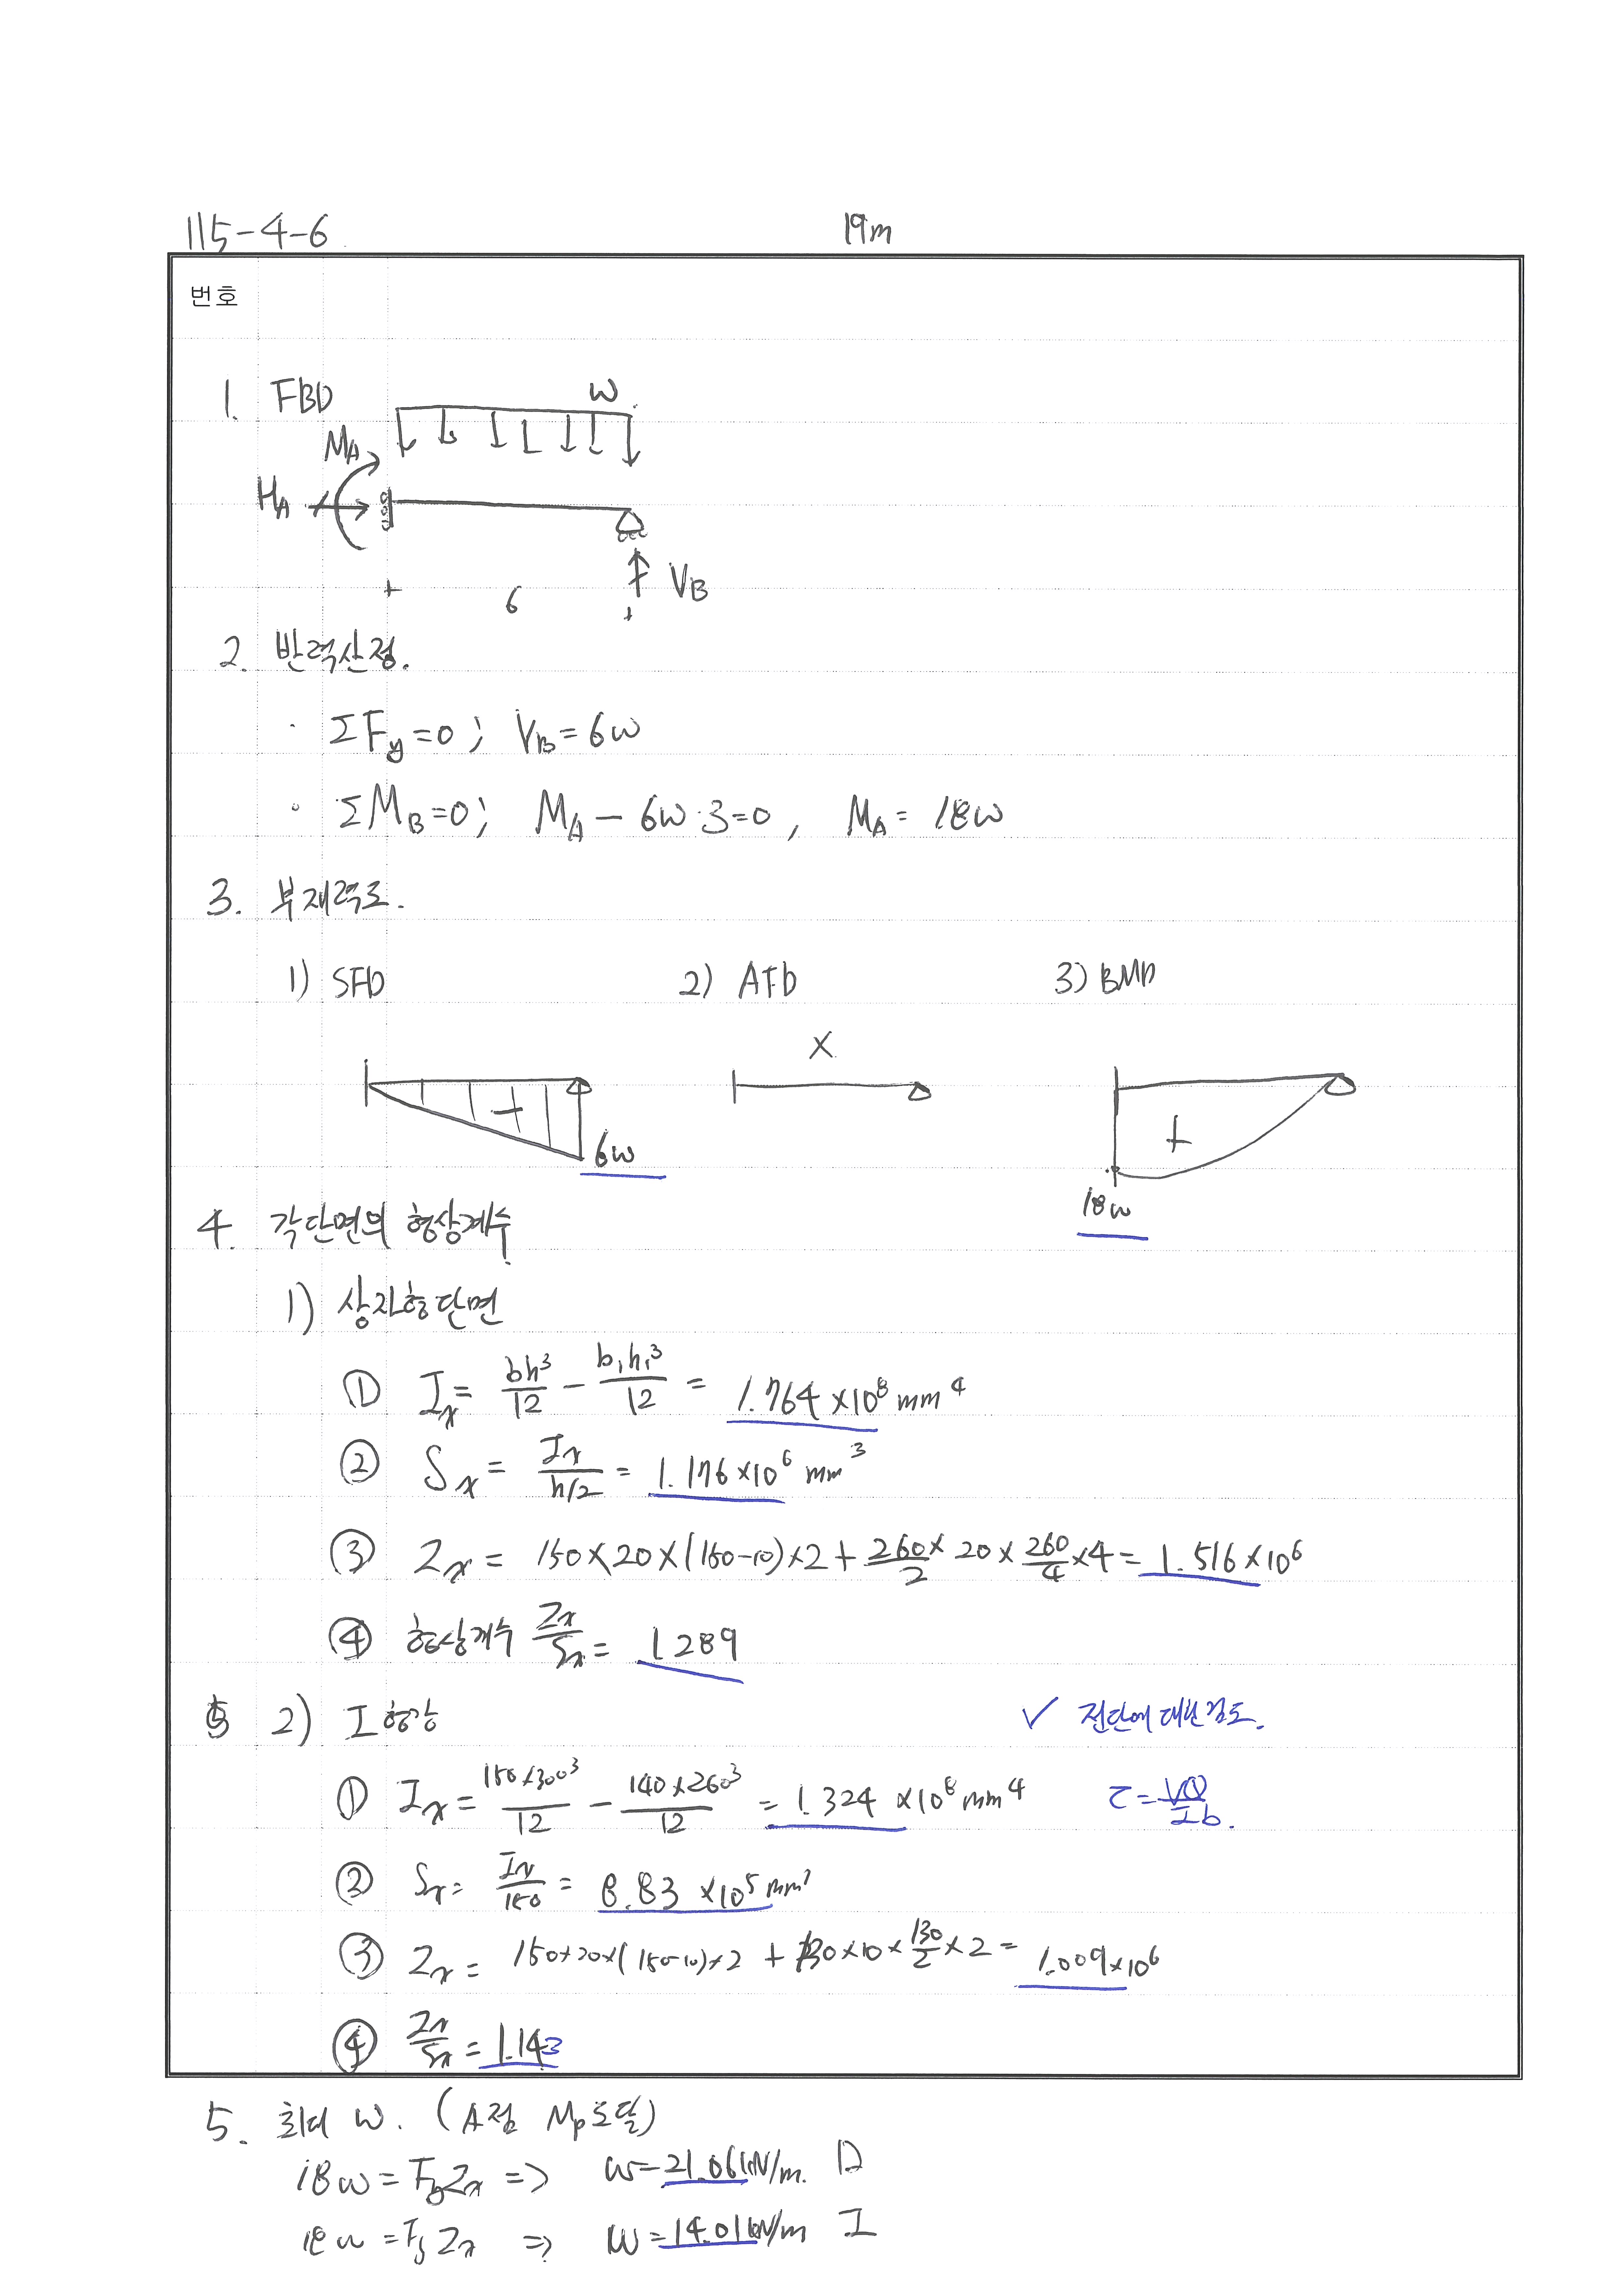 115-4-6 19m
번호
1. FBD
w
M_A
H_A
V_B
6
2. 반력산정.
· ΣF_y=0; V_B=6w
· ΣM_B=0; M_A - 6w·3=0, M_A= 18w
3. 부재력도.
1) SFD 2) AFD 3) BMD
X
+ 6w
+ 18w
4. 각단면의 형상계수.
1) 상자형단면
① I_x= bh³/12 - b₁h₁³/12 = 1.764 ×10⁸ mm⁴
② S_x = I_x/(h/2) = 1.176×10⁶ mm³
③ Z_x = 150×20×(150-10)×2 + 260/2 × 20 × 260/4 ×4 = 1.516×10⁶
④ 형상계수 Z_x/S_x = 1.289
2) I형강 ✓ 전단에 대한 검토.
① I_x = 150×300³/12 - 140×260³/12 = 1.324 ×10⁸ mm⁴ τ=VQ/Ib.
② S_x= I_x/150 = 8.83 ×10⁵ mm³
③ Z_x = 150×20×(150-10)×2 + 130×10×130/2×2 = 1.009×10⁶
④ Z_x/S_x = 1.143
5. 최대 w. (A점 M_p도달)
18w = F_yZ_x => w=21.06kN/m. D
18w =F_yZ_x => w=14.01kN/m I